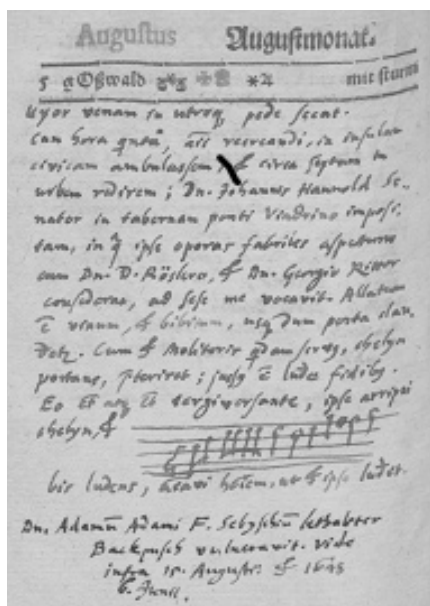 Augustus Augustmonat.
5 g Oßwald mit sturm
Uxor venam in utroq, pede secat.
Cum hora animi recreandi, in insulam
civicam ambulassem, & circa septimam in
urbem redirem; Dn. Johannes Hannold Se-
nator in tabernam ponti Viadrino imposi-
tam, in ipse operas fabriles aspecturus
cum Dn. D. Röslero, & Dn. Georgio Ritter
consederat, ad sese me vocavit. Allatum
ē vinum, & bibimus, usq dum porta clau-
Cum & Molitoris servus, chelyn
portans, ; ē ludere fidibus.
Eo tergiversante, ipse arripui
chelyn, &
bis ludens, ut & ipse luderet.
Dn. Adamū Adami F. Sebyschū lethaliter
Backpusch vulneravit. vide
infra 15. Augusti. & 1648
6. Junii.